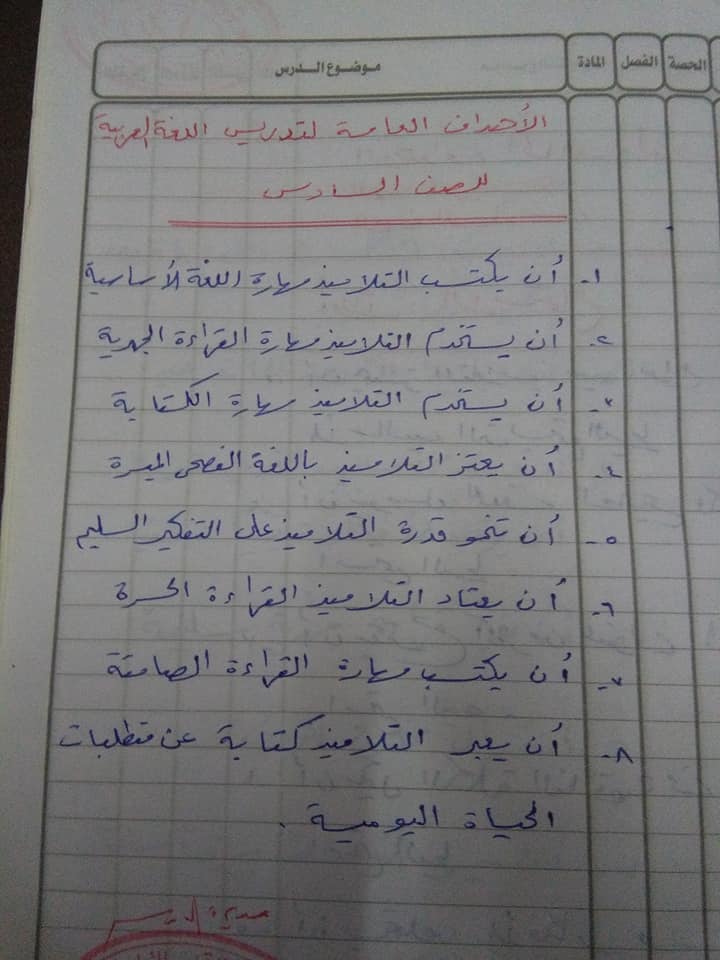 الحصة الفصل المادة موضوع الدرس
الأهداف العامة لتدريس اللغة العربية
للصف السادس
١- أن يكتسب التلاميذ مهارة اللغة الأساسية
٢- أن يستخدم التلاميذ مهارة القراءة الجهرية
٣- أن يستخدم التلاميذ مهارة الكتابة
٤- أن يعتز التلاميذ باللغة الفصحى الميسرة
٥- أن تنمو قدرة التلاميذ على التفكير السليم
٦- أن يعتاد التلاميذ القراءة الحرة
٧- أن يكتسب مهارة القراءة الصامتة
٨- أن يعبر التلاميذ كتابة عن متطلبات
الحياة اليومية .